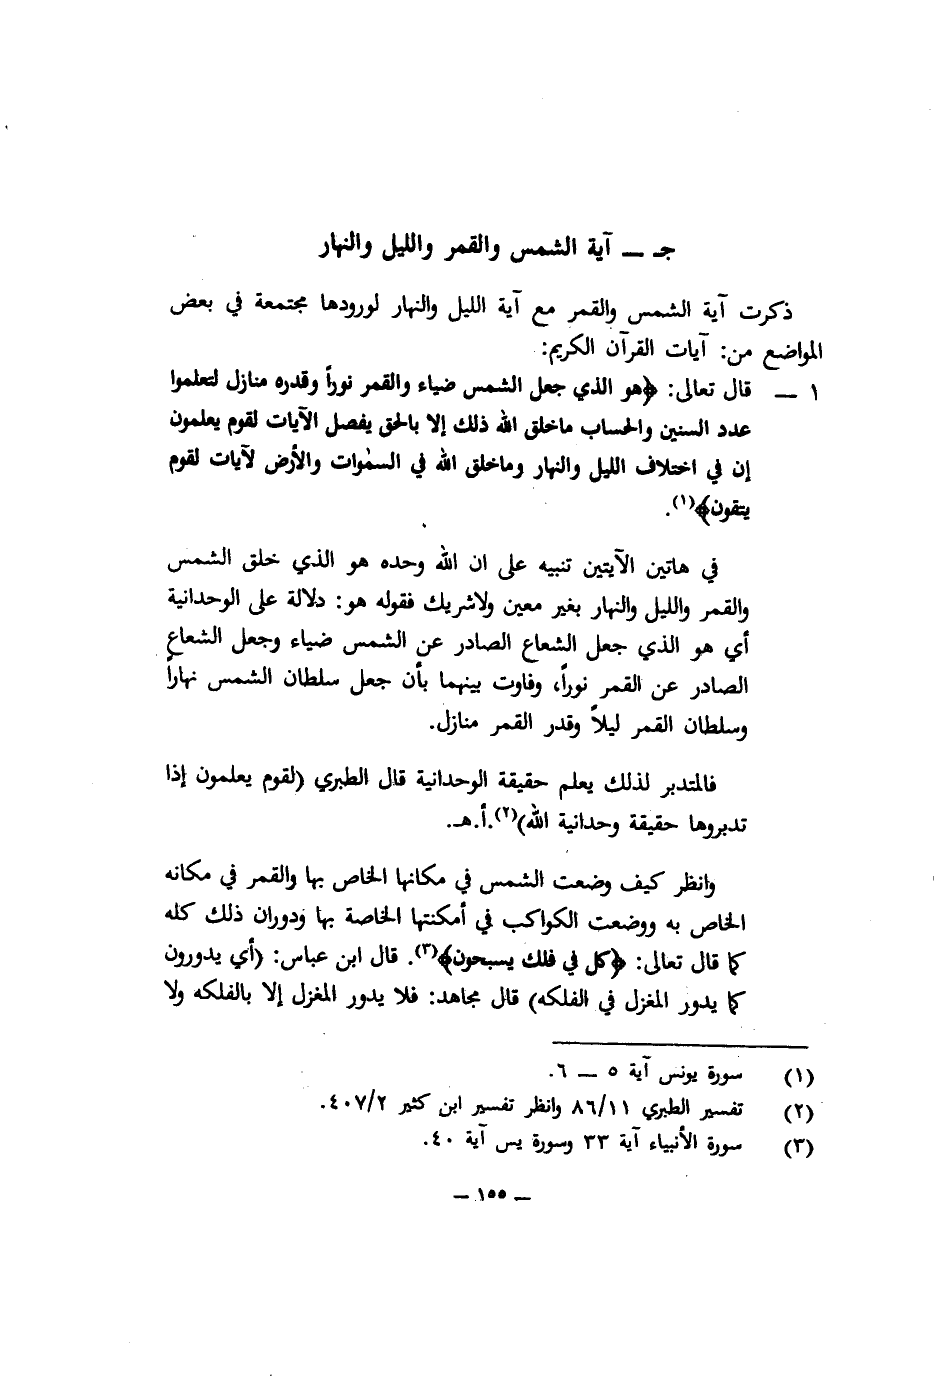 جـ ــ آية الشمس والقمر والليل والنهار
ذكرت آية الشمس والقمر مع آية الليل والنهار لورودها مجتمعة في بعض
المواضع من: آيات القرآن الكريم:
١ ــ قال تعالى: ﴿هو الذي جعل الشمس ضياء والقمر نوراً وقدره منازل لتعلموا
عدد السنين والحساب ماخلق الله ذلك إلا بالحق يفصل الآيات لقوم يعلمون
إن في اختلاف الليل والنهار وماخلق الله في السمٰوات والأرض لآيات لقوم
يتقون﴾(١).
في هاتين الآيتين تنبيه على ان الله وحده هو الذي خلق الشمس
والقمر والليل والنهار بغير معين ولاشريك فقوله هو: دلالة على الوحدانية
أي هو الذي جعل الشعاع الصادر عن الشمس ضياء وجعل الشعاع
الصادر عن القمر نوراً، وفاوت بينهما بأن جعل سلطان الشمس نهاراً
وسلطان القمر ليلاً وقدر القمر منازل.
فالمتدبر لذلك يعلم حقيقة الوحدانية قال الطبري (لقوم يعلمون إذا
تدبروها حقيقة وحدانية الله)(٢).أ.هـ.
وانظر كيف وضعت الشمس في مكانها الخاص بها والقمر في مكانه
الخاص به ووضعت الكواكب في أمكنتها الخاصة بها ودوران ذلك كله
كما قال تعالى: ﴿كل في فلك يسبحون﴾(٣). قال ابن عباس: (أي يدورون
كما يدور المغزل في الفلكه) قال مجاهد: فلا يدور المغزل إلا بالفلكه ولا
(١) سورة يونس آية ٥ ــ ٦.
(٢) تفسير الطبري ٨٦/١١ وانظر تفسير ابن كثير ٤٠٧/٢.
(٣) سورة الأنبياء آية ٣٣ وسورة يس آية ٤٠.
ــ ١٥٥ ــ